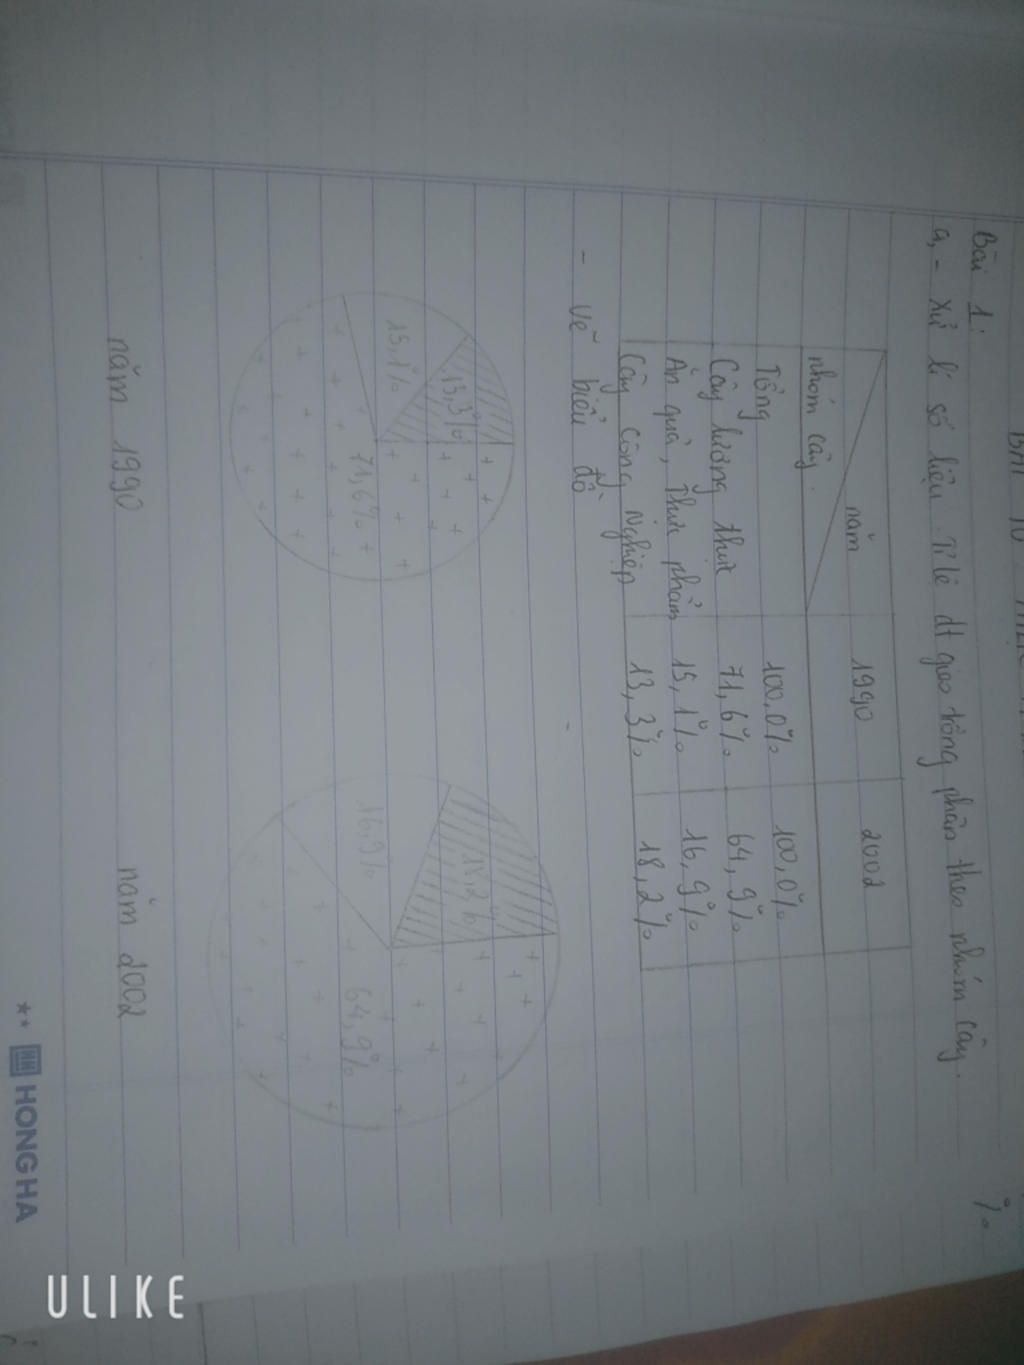 Bài 1:
a, - Xử lí số liệu. Tỉ lệ dt gieo trồng phân theo nhóm cây.
%
năm 1990 2002
nhóm cây.
Tổng 100,0% 100,0%
Cây lương thực 71,6% 64,9%
Ăn quả, Thực phẩm 15,1% 16,9%
Cây Công Nghiệp 13,3% 18,2%
- Vẽ biểu đồ
13,3% 18,2%
15,1% 16,9%
71,6% 64,9%
năm 1990 năm 2002
HONG HA
ULIKE